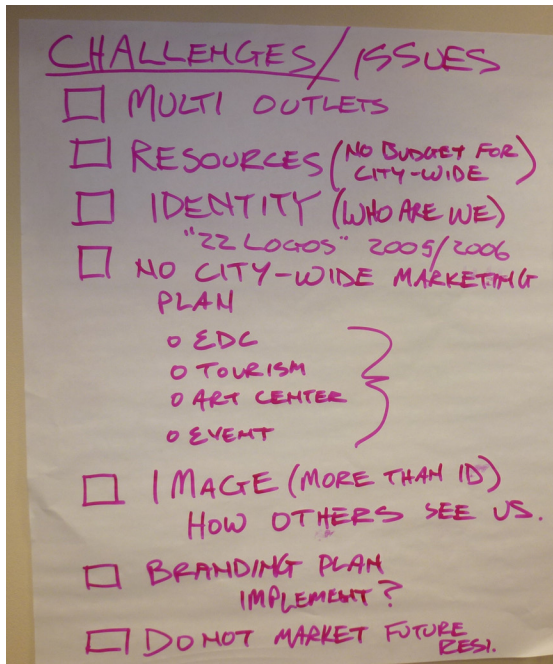 CHALLENGES/ISSUES
MULTI OUTLETS
RESOURCES (NO BUDGET FOR
CITY-WIDE)
IDENTITY (WHO ARE WE)
"22 LOGOS" 2005/2006
NO CITY-WIDE MARKETING
PLAN
EDC
TOURISM
ART CENTER
EVENT
IMAGE (MORE THAN ID)
HOW OTHERS SEE US.
BRANDING PLAN
IMPLEMENT?
DO NOT MARKET FUTURE
RESI.